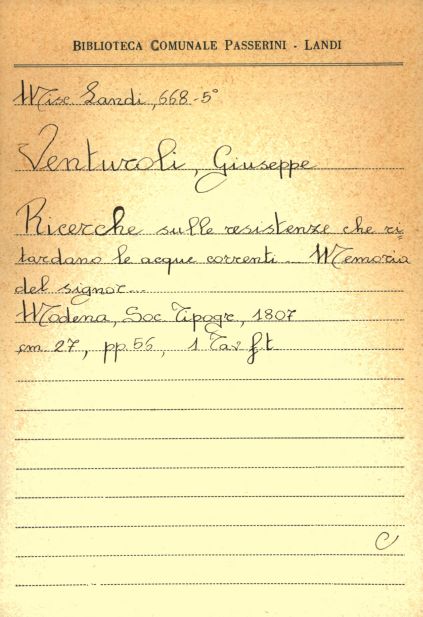 BIBLIOTECA COMUNALE PASSERINI - LANDI
Misc Landi, 668-5°
Venturoli, Giuseppe
Ricerche sulle resistenze che ri=
tardano le acque correnti... Memoria
del signor...
Modena, Soc Tipogr, 1807
cm 27, pp. 56, 1 Tav ft
C